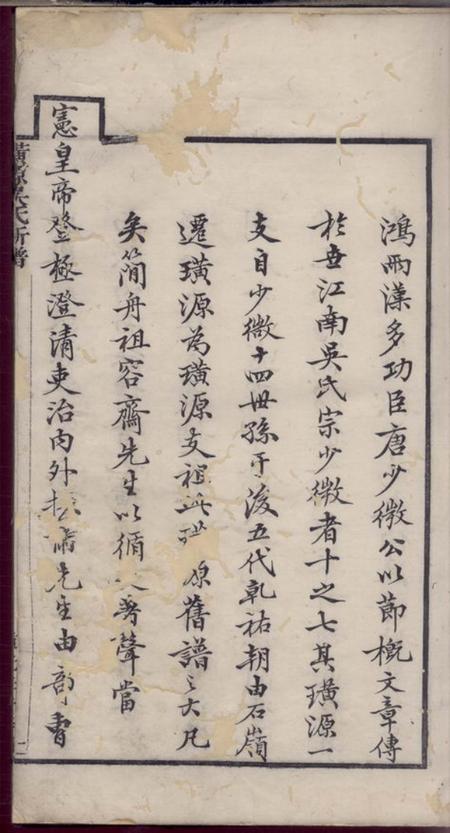 鴻兩漢多功臣唐少微公以節概文章傳
於世江南吳氏宗少微者十之七其璜源一
支自少微十四世孫于後五代乾祐朝由石嶺
遷璜源為璜源支祖此璜源舊譜之大凡
矣簡舟祖容齋先生以循著聲當
憲皇帝登極澄清吏治內外肅先生由部曹
吳氏新譜